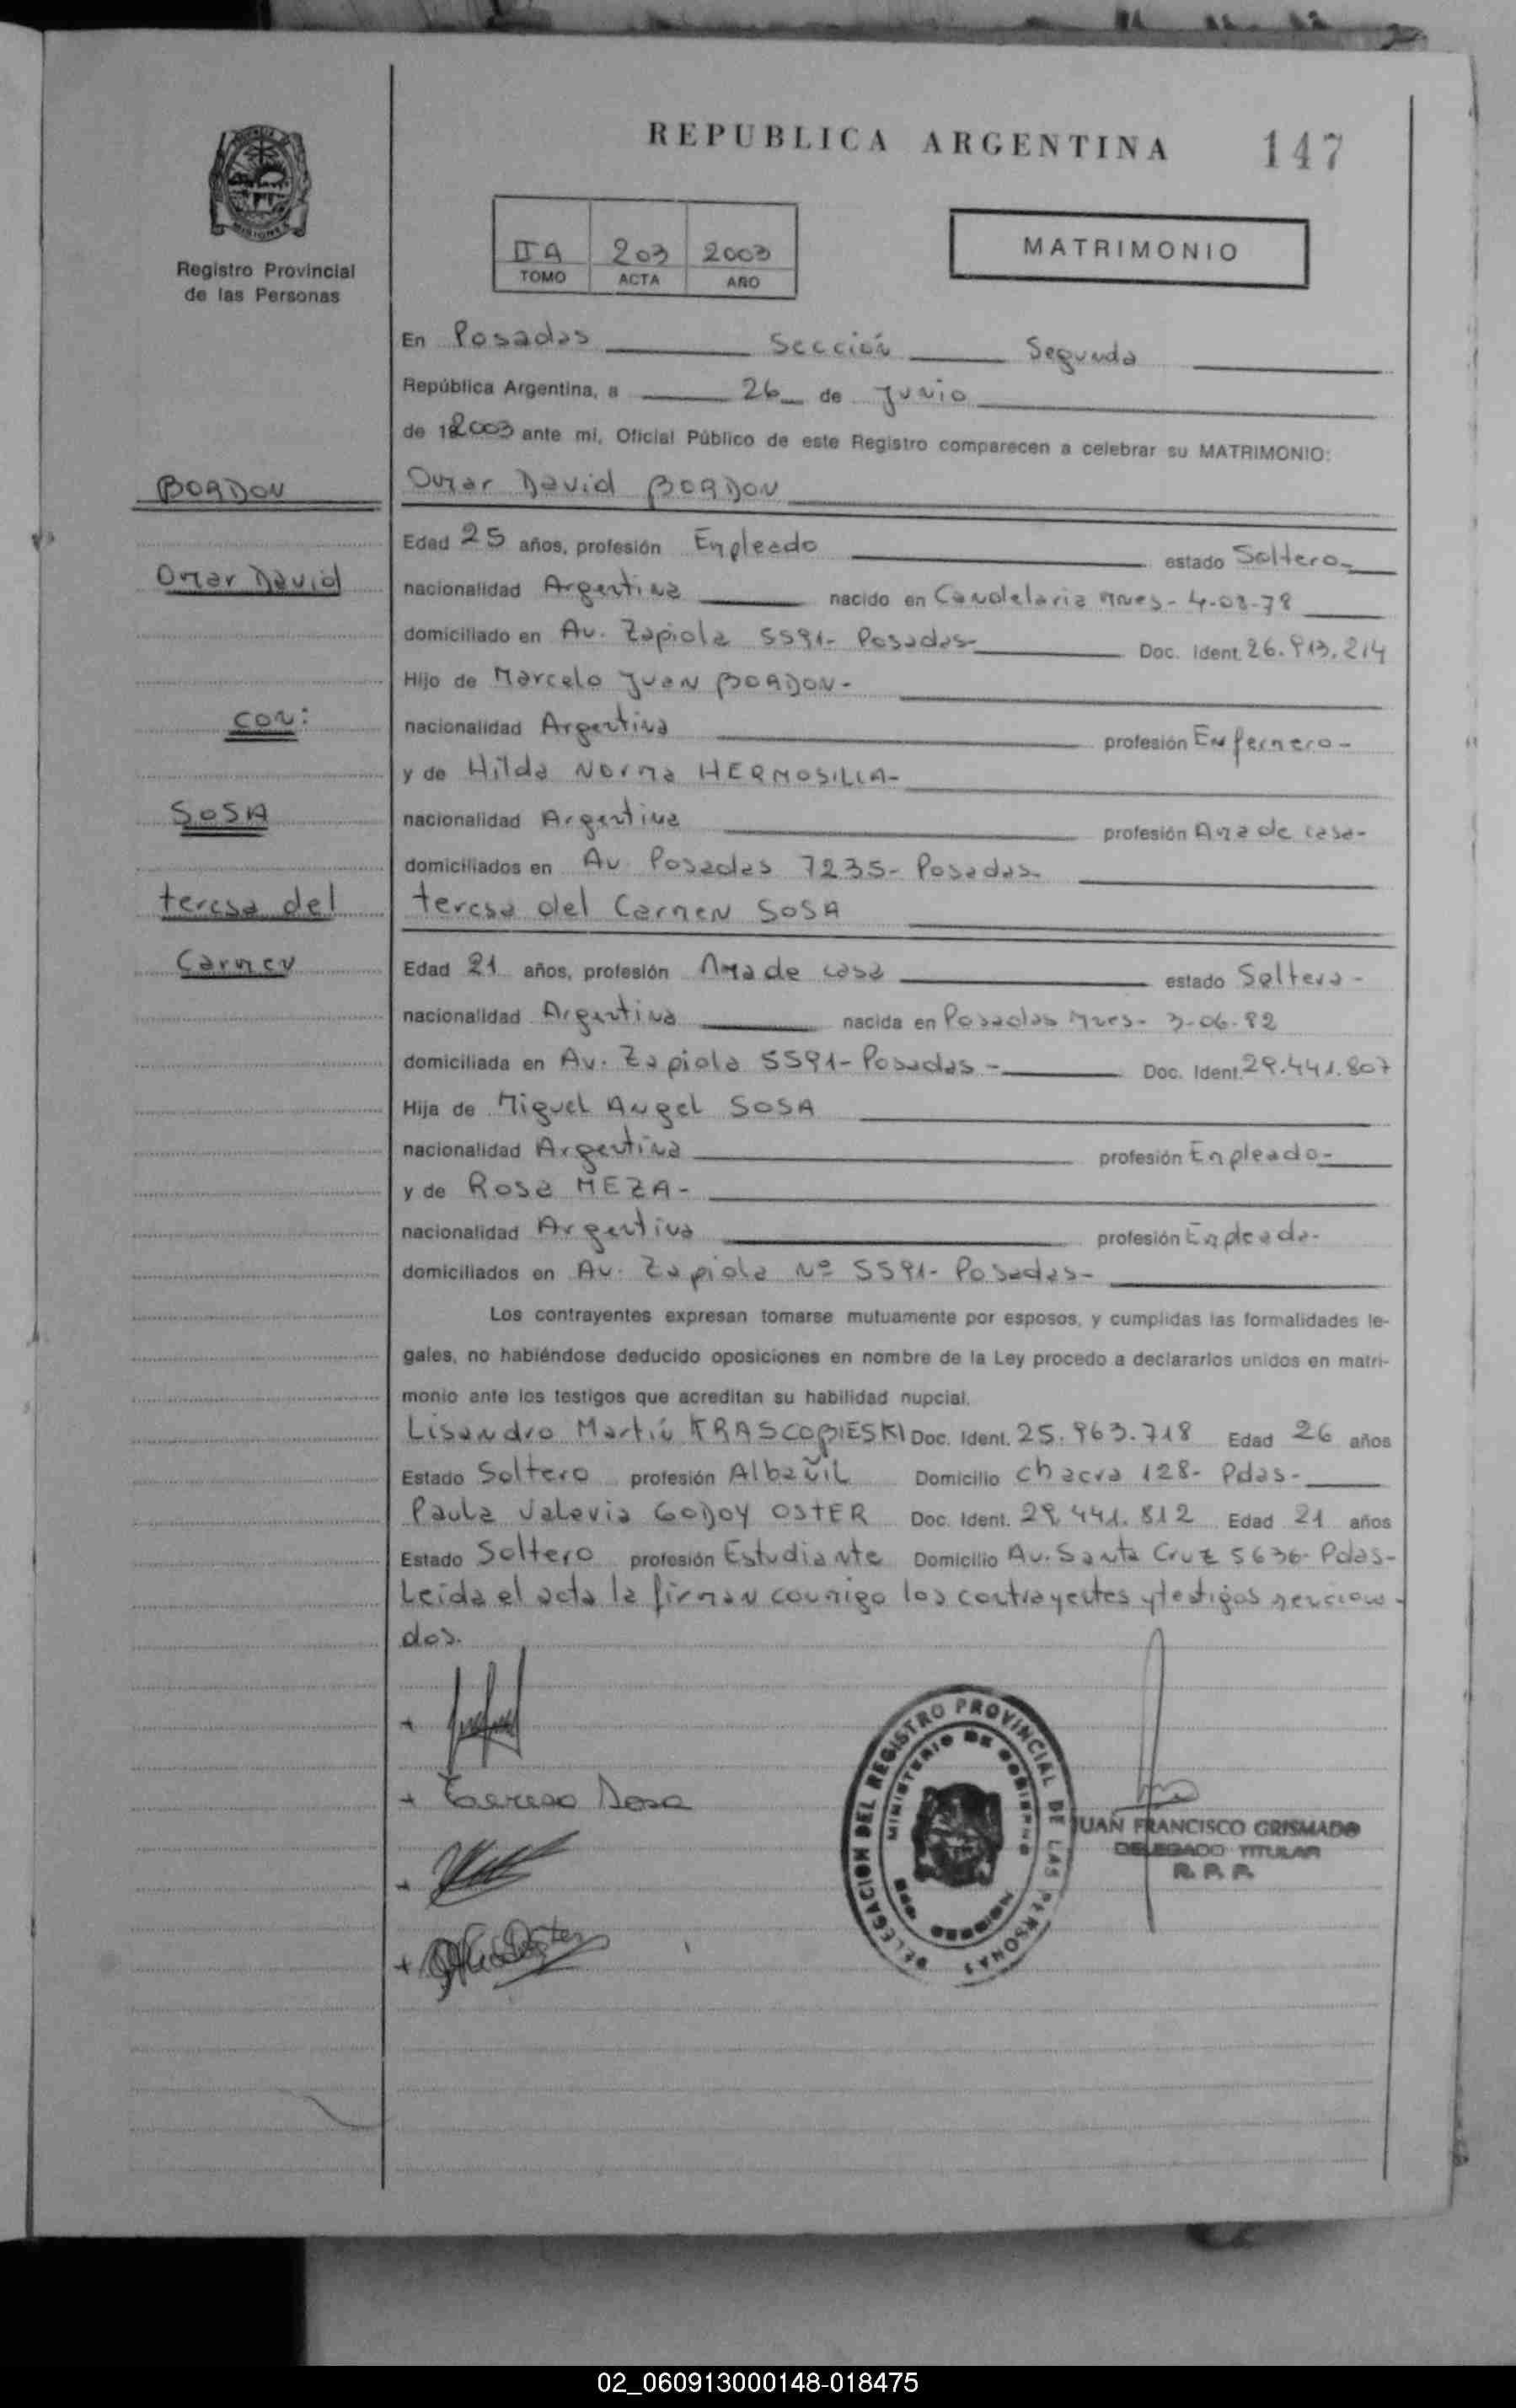 REPUBLICA ARGENTINA 147
MISIONES
Registro Provincial
de las Personas
II A 203 2003
TOMO ACTA AÑO
MATRIMONIO
En Posadas Sección Segunda
República Argentina, a 26 de Junio
de 2003 ante mi, Oficial Público de este Registro comparecen a celebrar su MATRIMONIO:
BORDON
Omar David BORDON
Edad 25 años, profesión Empleado estado Soltero-
Omar David
nacionalidad Argentina nacido en Candelaria Mnes- 4-03-78
domiciliado en Av. Zapiola 5591- Posadas- Doc. Ident. 26.913.214
Hijo de Marcelo Juan BORDON-
con:
nacionalidad Argentina profesión Enfermero-
y de Hilda Norma HERMOSILLA-
SOSA
nacionalidad Argentina profesión Ama de casa-
domiciliados en Av. Posadas 7235- Posadas-
teresa del
teresa del Carmen SOSA
Carmen
Edad 21 años, profesión Ama de casa estado Soltera-
nacionalidad Argentina nacida en Posadas Mnes- 3-06-82
domiciliada en Av. Zapiola 5591- Posadas- Doc. Ident. 29.441.807
Hija de Miguel Angel SOSA
nacionalidad Argentina profesión Empleado-
y de Rosa MEZA-
nacionalidad Argentina profesión Empleada-
domiciliados en Av. Zapiola Nº 5591- Posadas-
Los contrayentes expresan tomarse mutuamente por esposos, y cumplidas las formalidades le-
gales, no habiéndose deducido oposiciones en nombre de la Ley procedo a declararlos unidos en matri-
monio ante los testigos que acreditan su habilidad nupcial.
Lisandro Martín KRASCOBIESKI Doc. Ident. 25.963.718 Edad 26 años
Estado Soltero profesión Albañil Domicilio Chacra 128- Pdas-
Paula Valeria GODOY OSTER Doc. Ident. 29.441.812 Edad 21 años
Estado Soltero profesión Estudiante Domicilio Av. Santa Cruz 5636- Pdas-
Leida el acta la firman conmigo los contrayentes y testigos menciona-
dos.
Teresa Sosa
DELEGACION DEL REGISTRO PROVINCIAL DE LAS PERSONAS
MINISTERIO DE GOBIERNO
JUAN FRANCISCO GRISMADO
DELEGADO TITULAR
R. P. P.
02_060913000148-018475